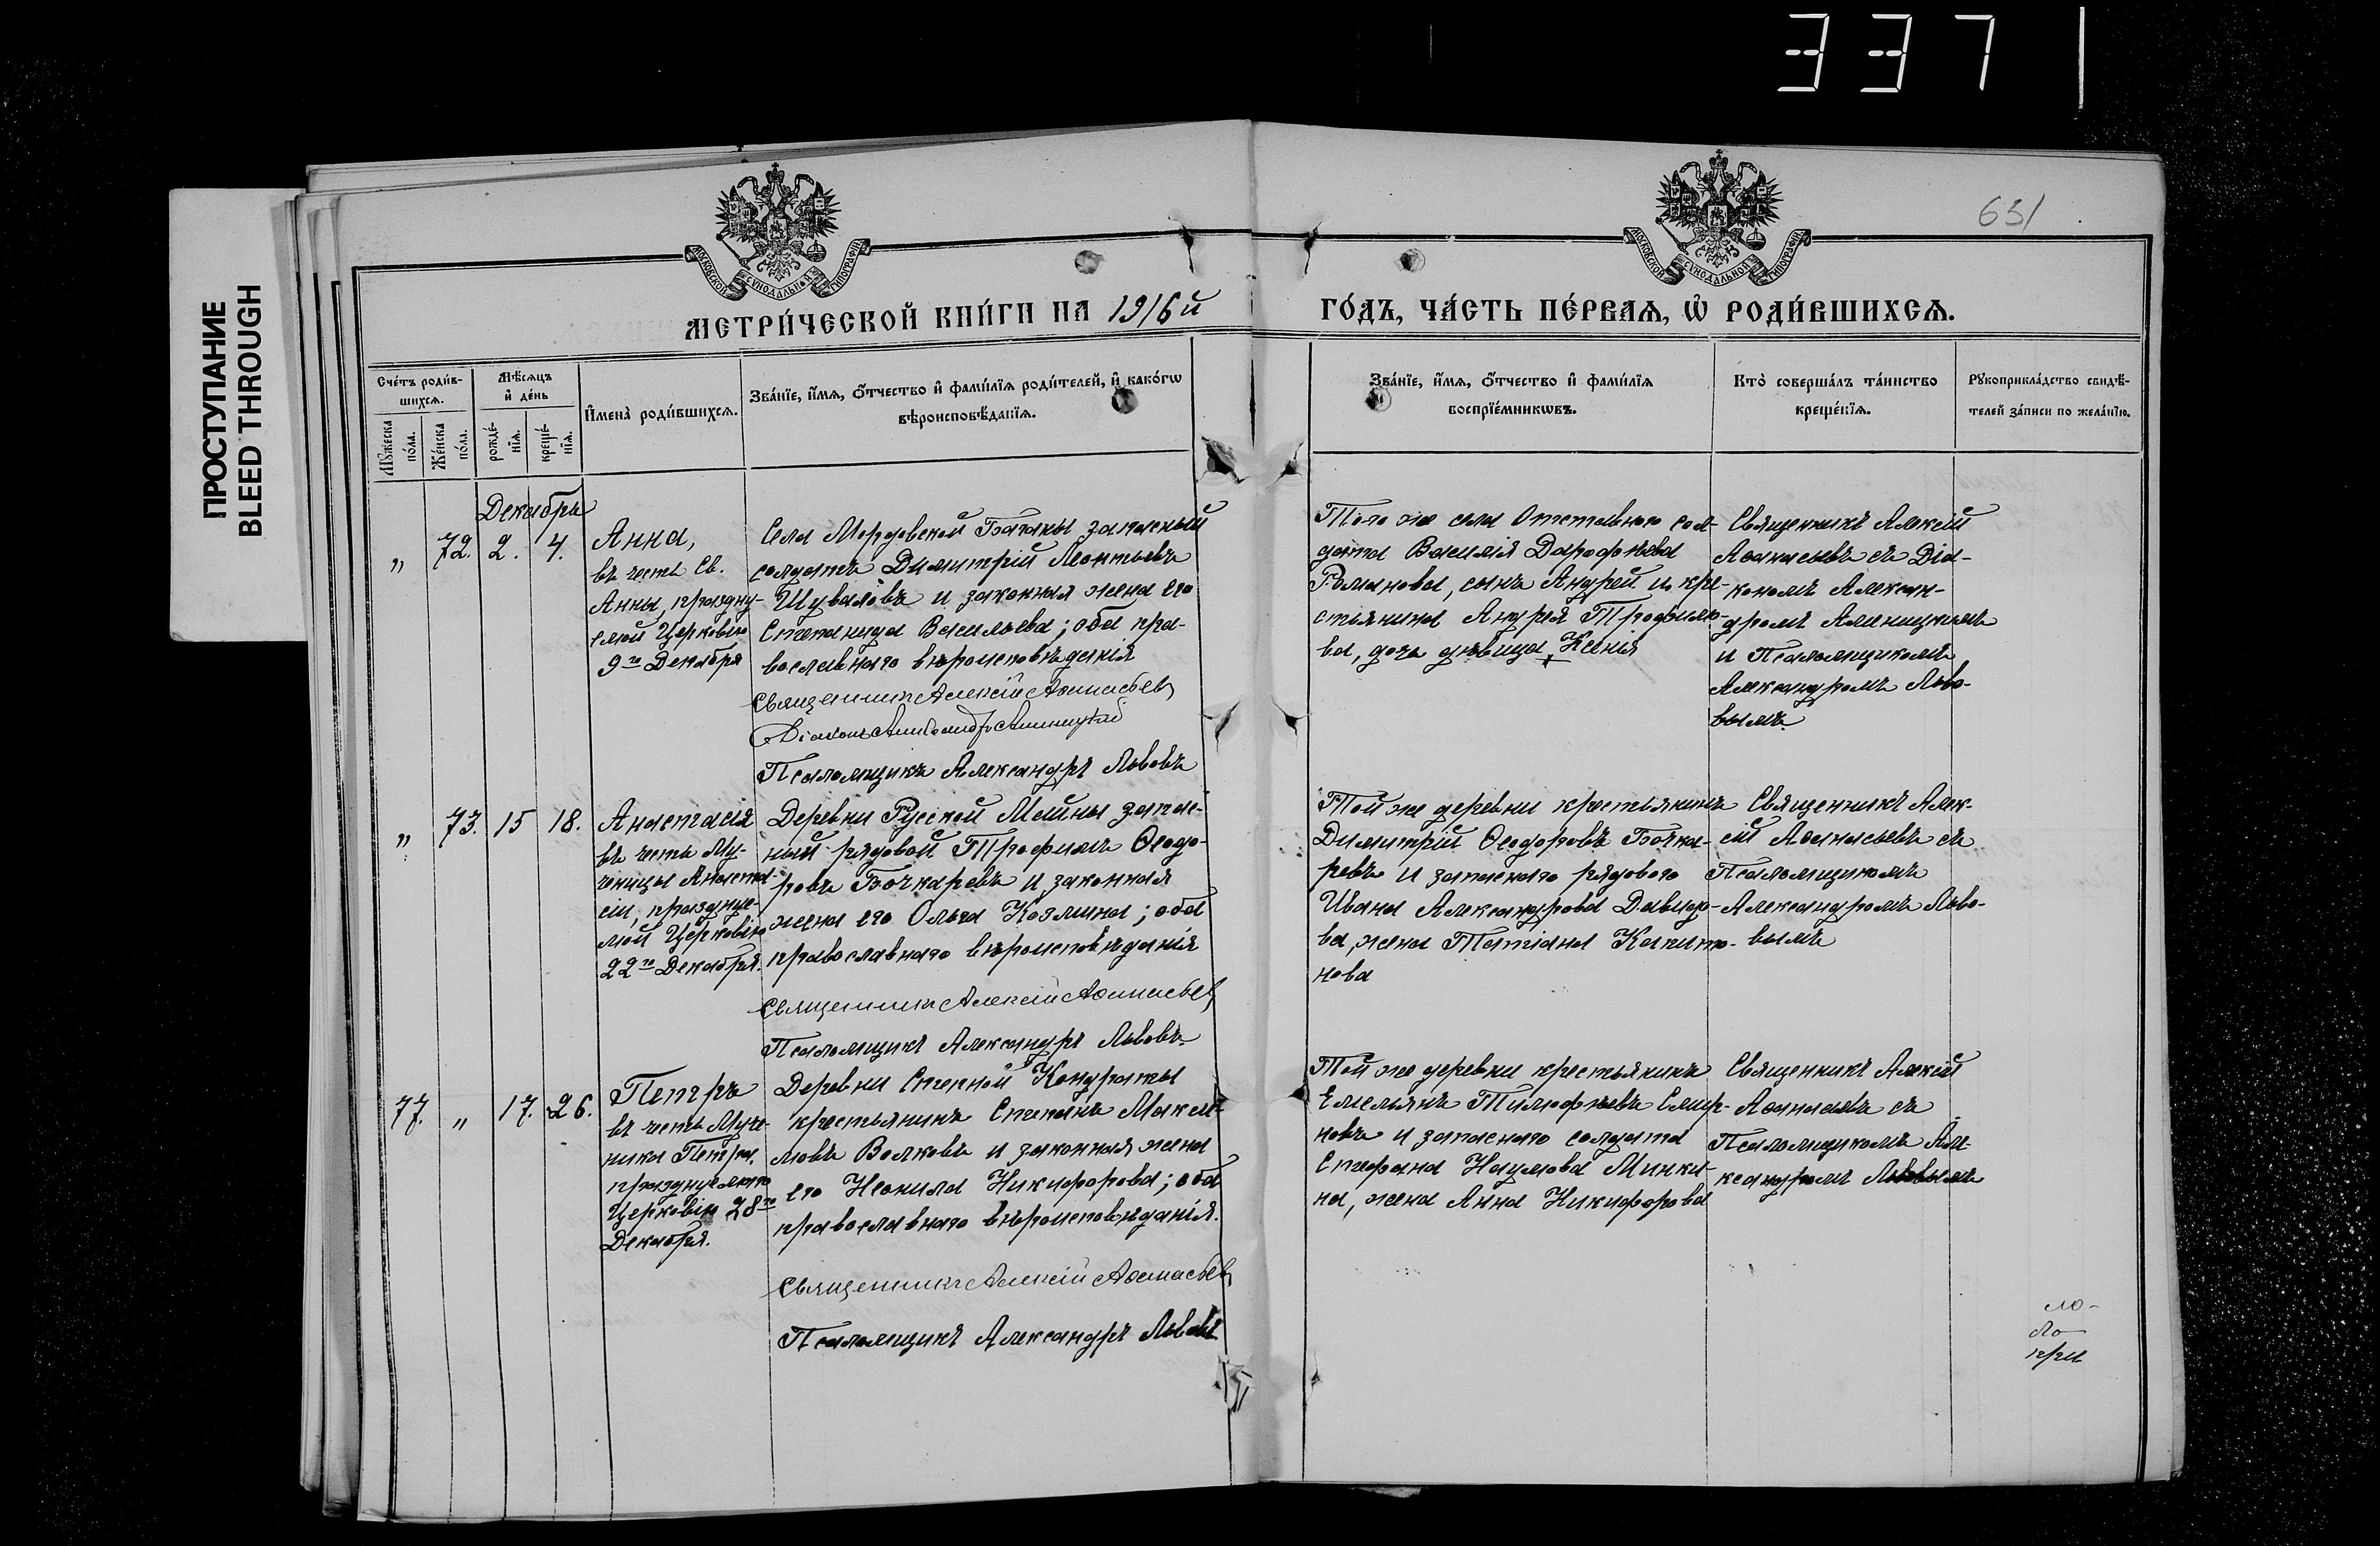 3371
ПРОСТУПАНИЕ
BLEED THROUGH
631
МОСКОВСКОЙ СѴНОДАЛЬНОЙ ТИПОГРАФІИ
МОСКОВСКОЙ СѴНОДАЛЬНОЙ ТИПОГРАФІИ
МЕТРИ́ЧЕСКОЙ КНИ́ГИ НА 1916й
ГО́ДЪ, ЧА́СТЬ ПЕ́РВАѦ, Ѡ҆ РОДИ́ВШИХСѦ.
Сче́тъ роди́в-
шихсѧ.
Мꙋ́жеска
по́ла.
Же́нска
по́ла.
Мѣ́сѧцъ
и҆ де́нь
рожде́-
нїѧ.
креще́-
нїѧ.
И҆мена̀ роди́вшихсѧ.
Зва́нїе, и҆́мѧ, ѻ҆́тчество и҆ фами́лїѧ роди́телей, и҆ како́гѡ
вѣроисповѣ́данїѧ.
Зва́нїе, и҆́мѧ, ѻ҆́тчество и҆ фами́лїѧ
воспрїе́мникѡвъ.
Кто̀ соверша́лъ та́инство
креще́нїѧ.
Рꙋкоприкла́дство свидѣ́-
телей за́писи по жела́нїю.
Декабрь
„ 72. 2. 4.
Анна,
въ честь Св.
Анны, праздну-
емой Церковію
9го Декабря
Села Мордовской Баганы запасный
солдатъ Димитрій Леонтьевъ
Шуваловъ и законная жена его
Степанида Васильева; оба пра-
вославнаго вѣроисповѣданія
Священникъ Алексій Аѳанасьевъ
Діаконъ Александръ
Псаломщикъ Александръ Львовъ
Того же села Отставного сол-
дата Василія Дорофѣева
Романова, сынъ Андрей и кре-
стьянина Андрея Трофимо-
ва, дочь дѣвица Ксенія
Священникъ Алексій
Аѳанасьевъ съ Діа-
кономъ Алексан-
дромъ
и Псаломщикомъ
Александромъ Льво-
вымъ.
„ 73. 15 18.
Анастасія
въ честь Му-
ченицы Анаста-
сіи, праздуе-
мой Церковію
22го Декабря.
Деревни Русской Майны запас-
ный рядовой Трофимъ Ѳеодо-
ровъ Бочкаревъ и законная
жена его Ольга Козмина; оба
православнаго вѣроисповѣданія
Священникъ Алексій Аѳанасьевъ
Псаломщикъ Александръ Львовъ
Той же деревни крестьянинъ
Димитрій Ѳеодоровъ Бочка-
ревъ и запаснаго рядового
Ивана Александрова Давидо-
ва, жена Татіана Капито-
нова
Священникъ Алек-
сій Аѳанасьевъ съ
Псаломщикомъ
Александромъ Льво-
вымъ
77. „ 17. 26.
Петръ
въ честь Муче-
ника Петра,
празднуемаго
Церковію 28го
Декабря.
Деревни Степной Кондраты
крестьянинъ Степанъ Макси-
мовъ Волковъ и законная жена
его Неонила Никифорова; оба
православнаго вѣроисповѣданія.
Священникъ Алексій Аѳанасьевъ
Псаломщикъ Александръ Львовъ
Той же деревни крестьянинъ
Емельянъ Тимофѣевъ Смир-
новъ и запаснаго солдата
Стефана Наумова Минки-
на, жена Анна Никифорова
Священникъ Алексій
Аѳанасьевъ съ
Псаломщикомъ Але-
ксандромъ Львовымъ